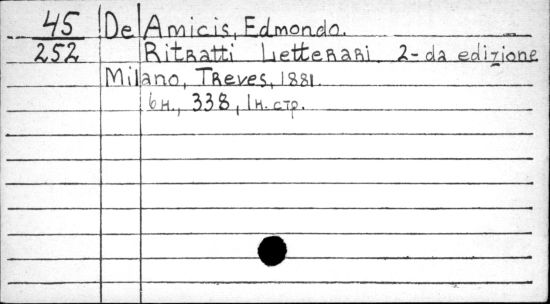 45 De Amicis, Edmondo.
252 Ritratti Letterari. 2-da edizione
Milano, Treves, 1881.
6 н., 338, 1 н. стр.